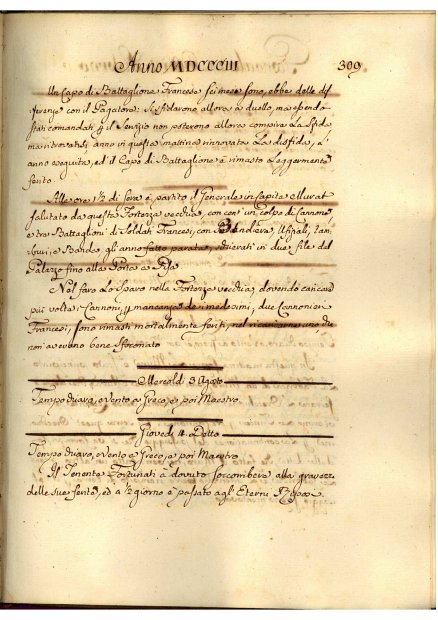 Anno MDCCCIII 309
Un Capo di Battaglione Francese sei mesi sono, ebbe delle dif-
ferenze con il Pagatore: Si sfidarono allora a duello, ma essendo
stati comandati p il Servizio non poterono allora compire La Sfida
ma ritrovatisi, anno in questa mattina rinnovata La disfida, l'
anno eseguita, ed il Capo di Battaglione è rimasto Leggermente
ferito
Alle ore 1½ di sera è partito il Generale in Capite Murat
salutato da questa Fortezza vecchia, con cento un colpo di Cannone,
e tre Battaglioni di Soldati Francesi, con Bandiera, Ufizjali, Tam-
buri, e Banda gli anno fatto parata, situati in due file dal
Palazzo fino alla Porta a Pisa
Nel fare Lo sparo nella Fortezza vecchia, dovendo caricare
più volte i Cannoni, p mancanza de i medesimi, due Cannonieri
Francesi, sono rimasti mortalmente feriti, nel ricaricarne uno che
non avevano bene sfornato
Mercoldì 3 Agosto
Tempo Duaro, e Vento a Greco, e poi Maestro
Giovedì 4 Detto
Tempo Duavo, e Vento a Greco, e poi Maestro
Il Tenente Fortunati è dovuto soccombere alla gravezza
delle sue ferite, ed a ½ giorno è passato agl' Eterni Riposi